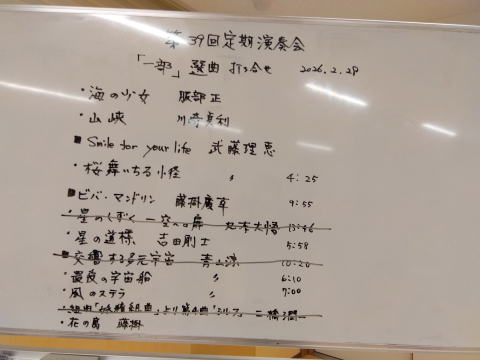 第39回定期演奏会
「一部」選曲 打ち合せ 2026.2.28
・海の少女 服部 正
・山峡 川崎真利
■Smile for your life 武藤理恵
・桜舞いちる小径 〃 4:25
■ビバ・マンドリン 藤掛廣幸 9:55
・星のしずく 一空への扉 丸本大悟 13:46
・星の道標 吉田剛士 5:58
■交響する多元宇宙 青山涼 10:20
・最後の宇宙船 〃 6:10
・風のステラ 〃 7:00
・組曲「妖精組曲」より第4曲「シルフ」 二橋潤一
・花の島 藤掛